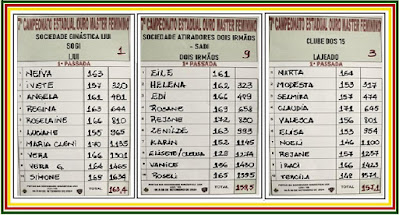 7º CAMPEONATO ESTADUAL OURO MASTER FEMININO
SOCIEDADE GINÁSTICA IJUI
SOGI 1
IJUI
1ª PASSADA
NEIVA 163
IVETE 157 320
ANGELA 161 481
REGINA 163 644
ROSELAINE 166 810
LUCIANE 155 965
MARIA CLENI 170 1135
VERA 166 1301
VERA G. 164 1465
SIMONE 169 1634
TOTAL 163,4
7º CAMPEONATO ESTADUAL OURO MASTER FEMININO
SOCIEDADE ATIRADORES DOIS IRMÃOS
- SADI 9
DOIS IRMÃOS
1ª PASSADA
EILE 161
HELENA 162 323
EDI 166 489
ROSANE 169 658
REJANE 172 830
ZENILDE 163 993
KARIN 152 1145
129 1274
VANICE 156 1430
ROSELI 165 1595
TOTAL 159,5
7º CAMPEONATO ESTADUAL OURO MASTER FEMININO
CLUBE DOS 15
3
LAJEADO
1ª PASSADA
MARTA 164
MODESTA 153 317
SELMIRA 157 474
CLAUDIA 171 645
VALESCA 156 801
ELISA 153 954
NOELI 146 1100
REJANE 157 1257
IRACI 166 1423
TERCILA 148 1571
TOTAL 157,1